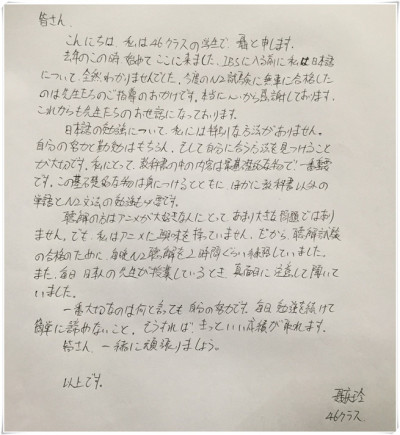 皆さん、
こんにちは、私は46クラスの学生で、聶と申します。
去年のこの頃、始めてここに来ました。IBSに入る前に私は日本語
について、全然わかりませんでした。今度のN2試験に無事に合格した
のは先生たちのご指導のおかげです。本当に心から感謝しております。
これからも先生たちのお世話になっております。
日本語の勉強法について、私には特別な方法がありません。
自分の努力と勤勉はもちろん、そして自分に合う方法を見つけること
が大切です。私にとって、教科書の中の内容は基礎的なもので一番重要
です。この基礎的なものは身につけるとともに、ほかに教科書以外の
単語とN2文法の勉強も必要です。
聴解の方はアニメが大好きな人にとって、あまり大きな問題ではあり
ません。でも、私はアニメに興味を持っていません。だから、聴解試験
の合格のために、毎晩N2聴解を2時間ぐらい練習していました。
また、毎日日本人の先生が授業しているとき、真面目に注意して聞いて
いました。
一番大切なのは何と言っても自分の努力です。毎日勉強を続けて
簡単に諦めないこと。そうすれば、きっといい成績が取れます。
皆さん、一緒に頑張りましょう。
以上です。
46クラス